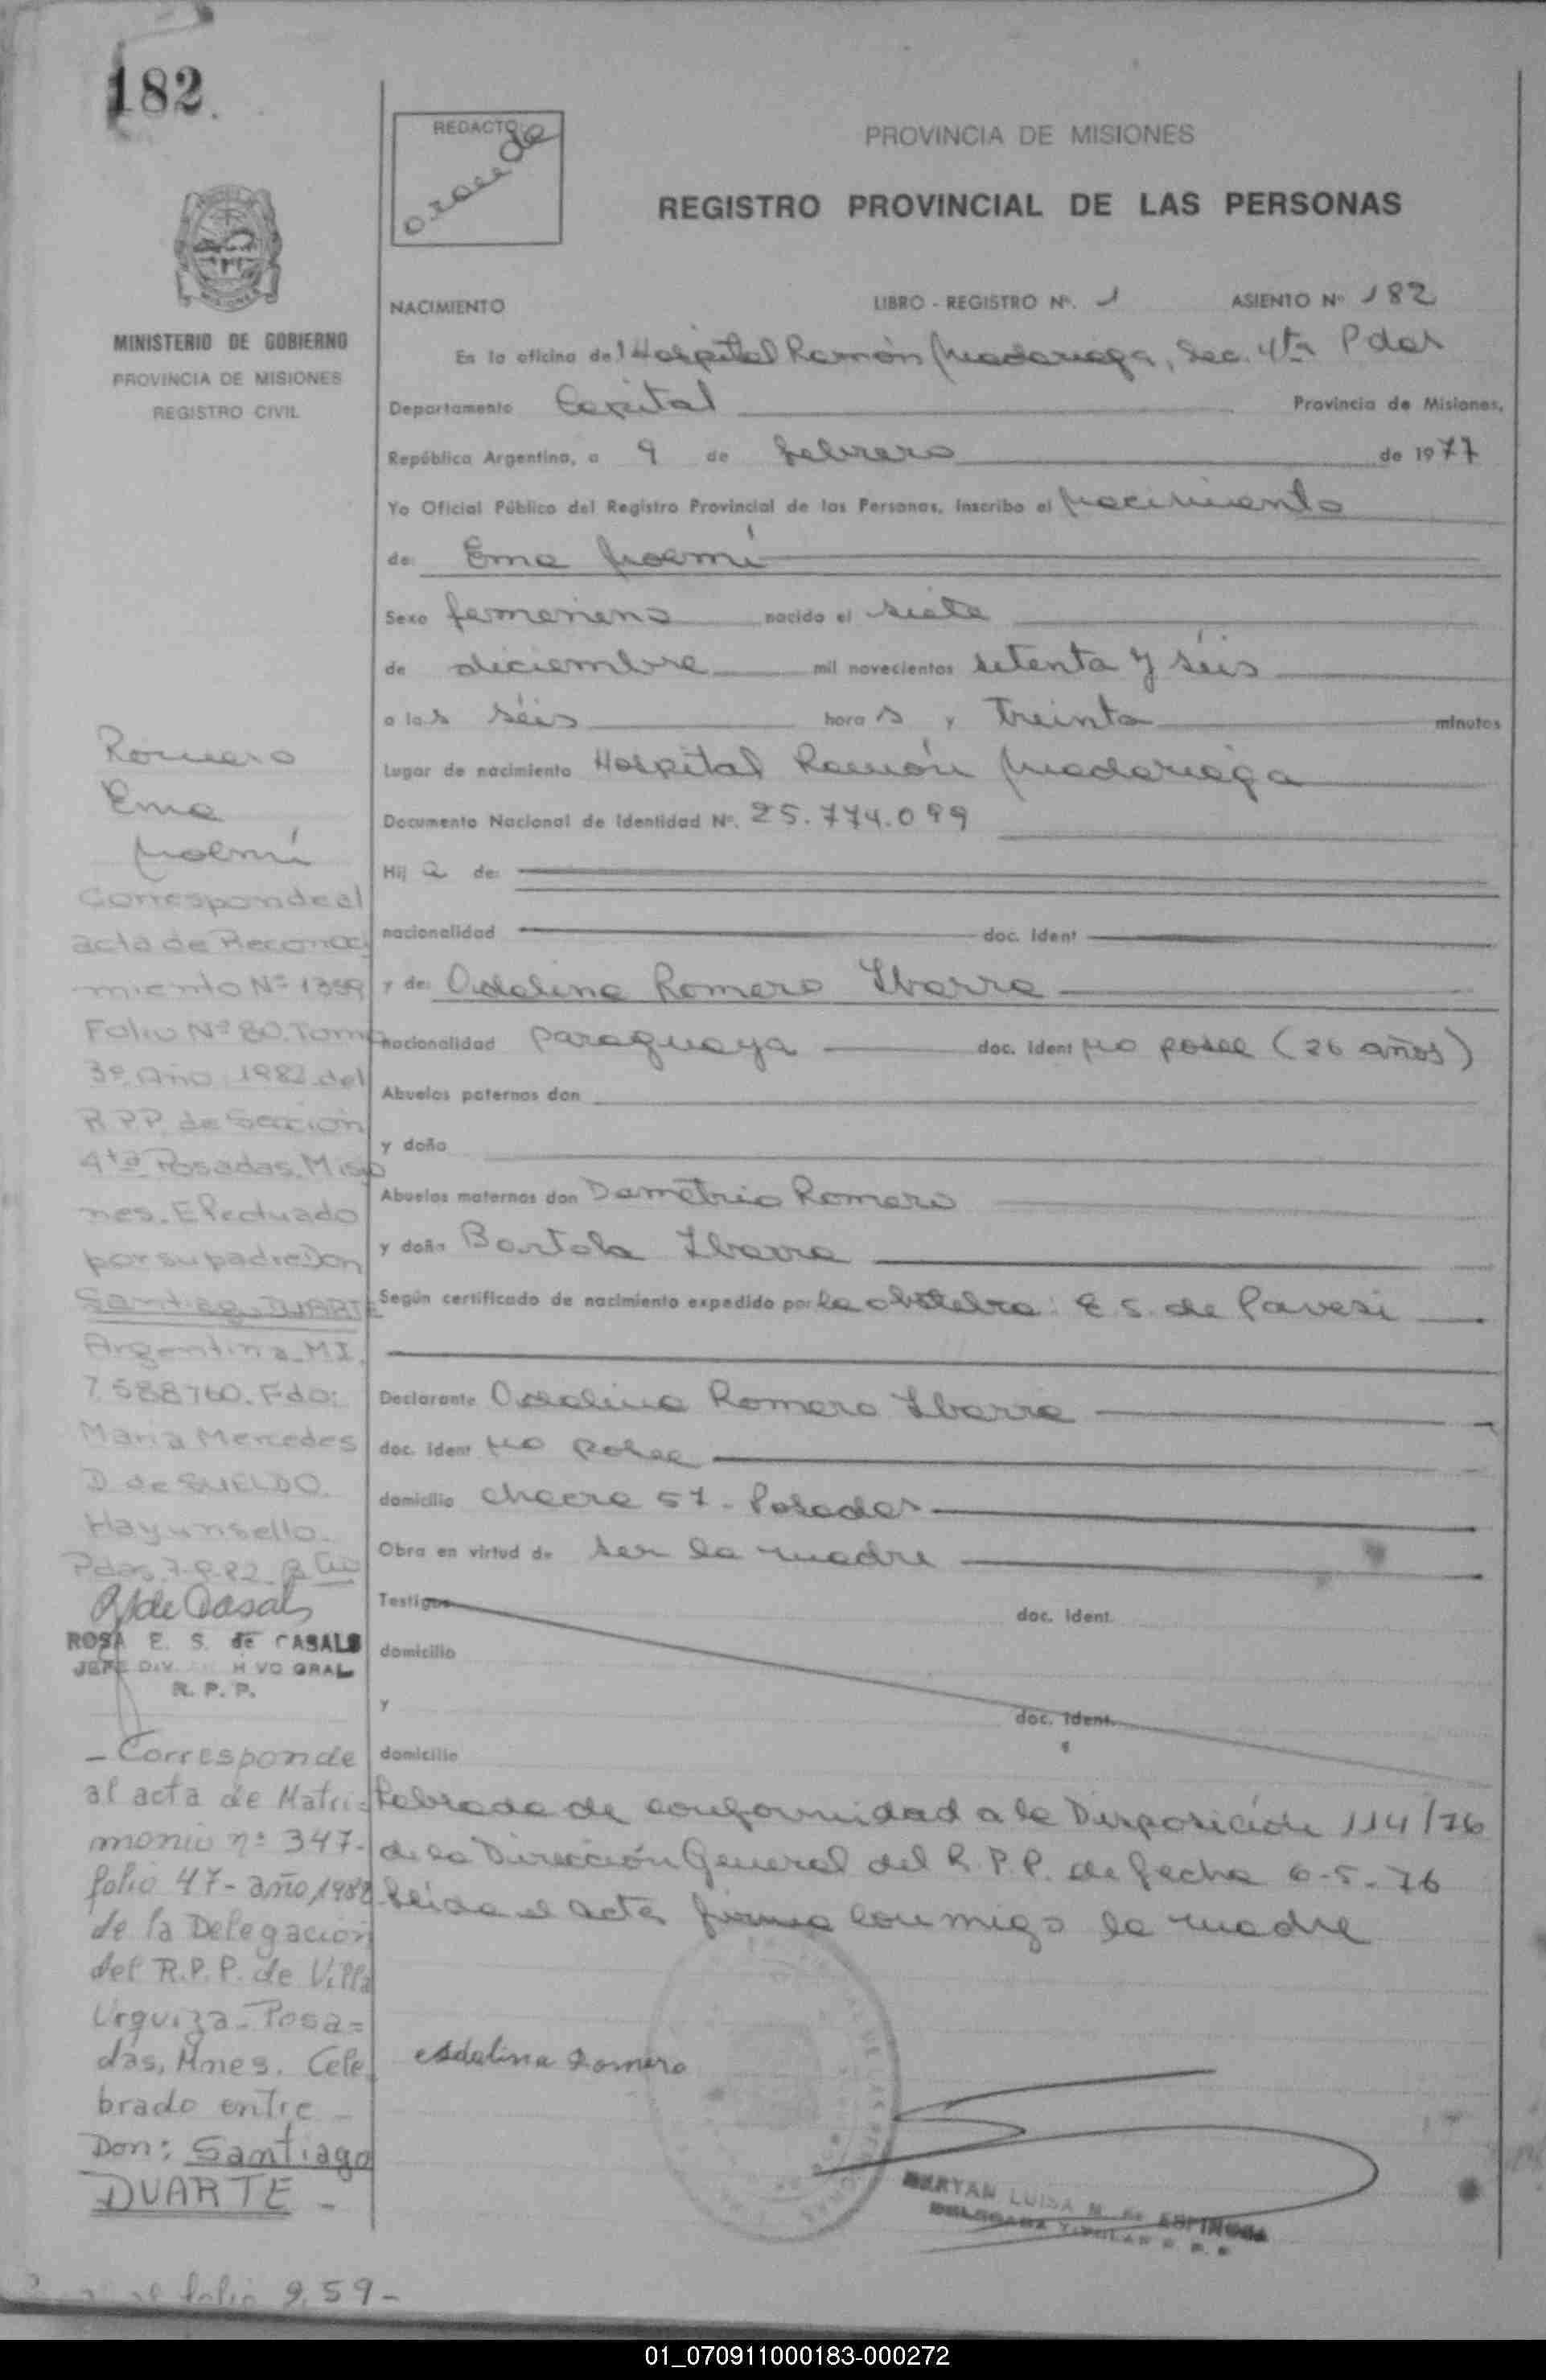 182
REDACTO
PROVINCIA DE MISIONES
REGISTRO PROVINCIAL DE LAS PERSONAS
MINISTERIO DE GOBIERNO
PROVINCIA DE MISIONES
REGISTRO CIVIL
NACIMIENTO LIBRO - REGISTRO Nº. 1 ASIENTO Nº 182
En la oficina del Hospital Ramón Madariaga, Sec. 4ta Pdas
Departamento Capital Provincia de Misiones,
República Argentina, a 9 de febrero de 1977
Yo Oficial Público del Registro Provincial de las Personas, inscribo el nacimiento
de: Ema Noemí
Sexo femenino nacido el siete
de diciembre mil novecientos setenta y séis
a las séis horas y treinta minutos
Lugar de nacimiento Hospital Ramón Madariaga
Documento Nacional de Identidad Nº. 25.774.099
Hija de:
nacionalidad doc. ident
y de: Adalina Romero Ibarra
nacionalidad paraguaya doc. ident no posee (26 años)
Abuelos paternos don
y doña
Abuelos maternos don Demetrio Romero
y doña Bartola Ibarra
Según certificado de nacimiento expedido por la obstetra: E. S. de Pavesi
Declarante Adalina Romero Ibarra
doc. ident no posee
domicilio chacra 57 - Posadas
Obra en virtud de ser la madre
Testigos doc. ident.
domicilio
y doc. ident.
domicilio
Labrada de conformidad a la Disposición 114/76
de la Dirección General del R.P.P. de fecha 6-5-76
Leida el acta firma conmigo la madre
Adalina Romero
MERYAN LUISA M. de ESPINOSA
DELEGADA TITULAR R. P. P.
Romero
Ema
Noemí
Corresponde al
acta de Reconoci
miento Nº 1359
Folio Nº 80. Tomo
3º Año 1982 del
R.P.P. de Sección
4ta Posadas. Misio
nes. Efectuado
por su padre Don
Santiago DUARTE
Argentina. M.I.
7.588760. Fdo:
Maria Mercedes
D. de SUELDO.
Hay un sello.
Pdas. 7-9-82
R S de Casals
ROSA E. S. de CASALS
JEFE DIV. GRAL
R. P. P.
- Corresponde
al acta de Matri=
monio nº 347-
folio 47 - año 1982
de la Delegación
del R.P.P. de Villa
Urquiza - Posa=
das, Mnes. Cele
brado entre -
Don: Santiago
DUARTE -
al folio 9, 59 -
01_070911000183-000272